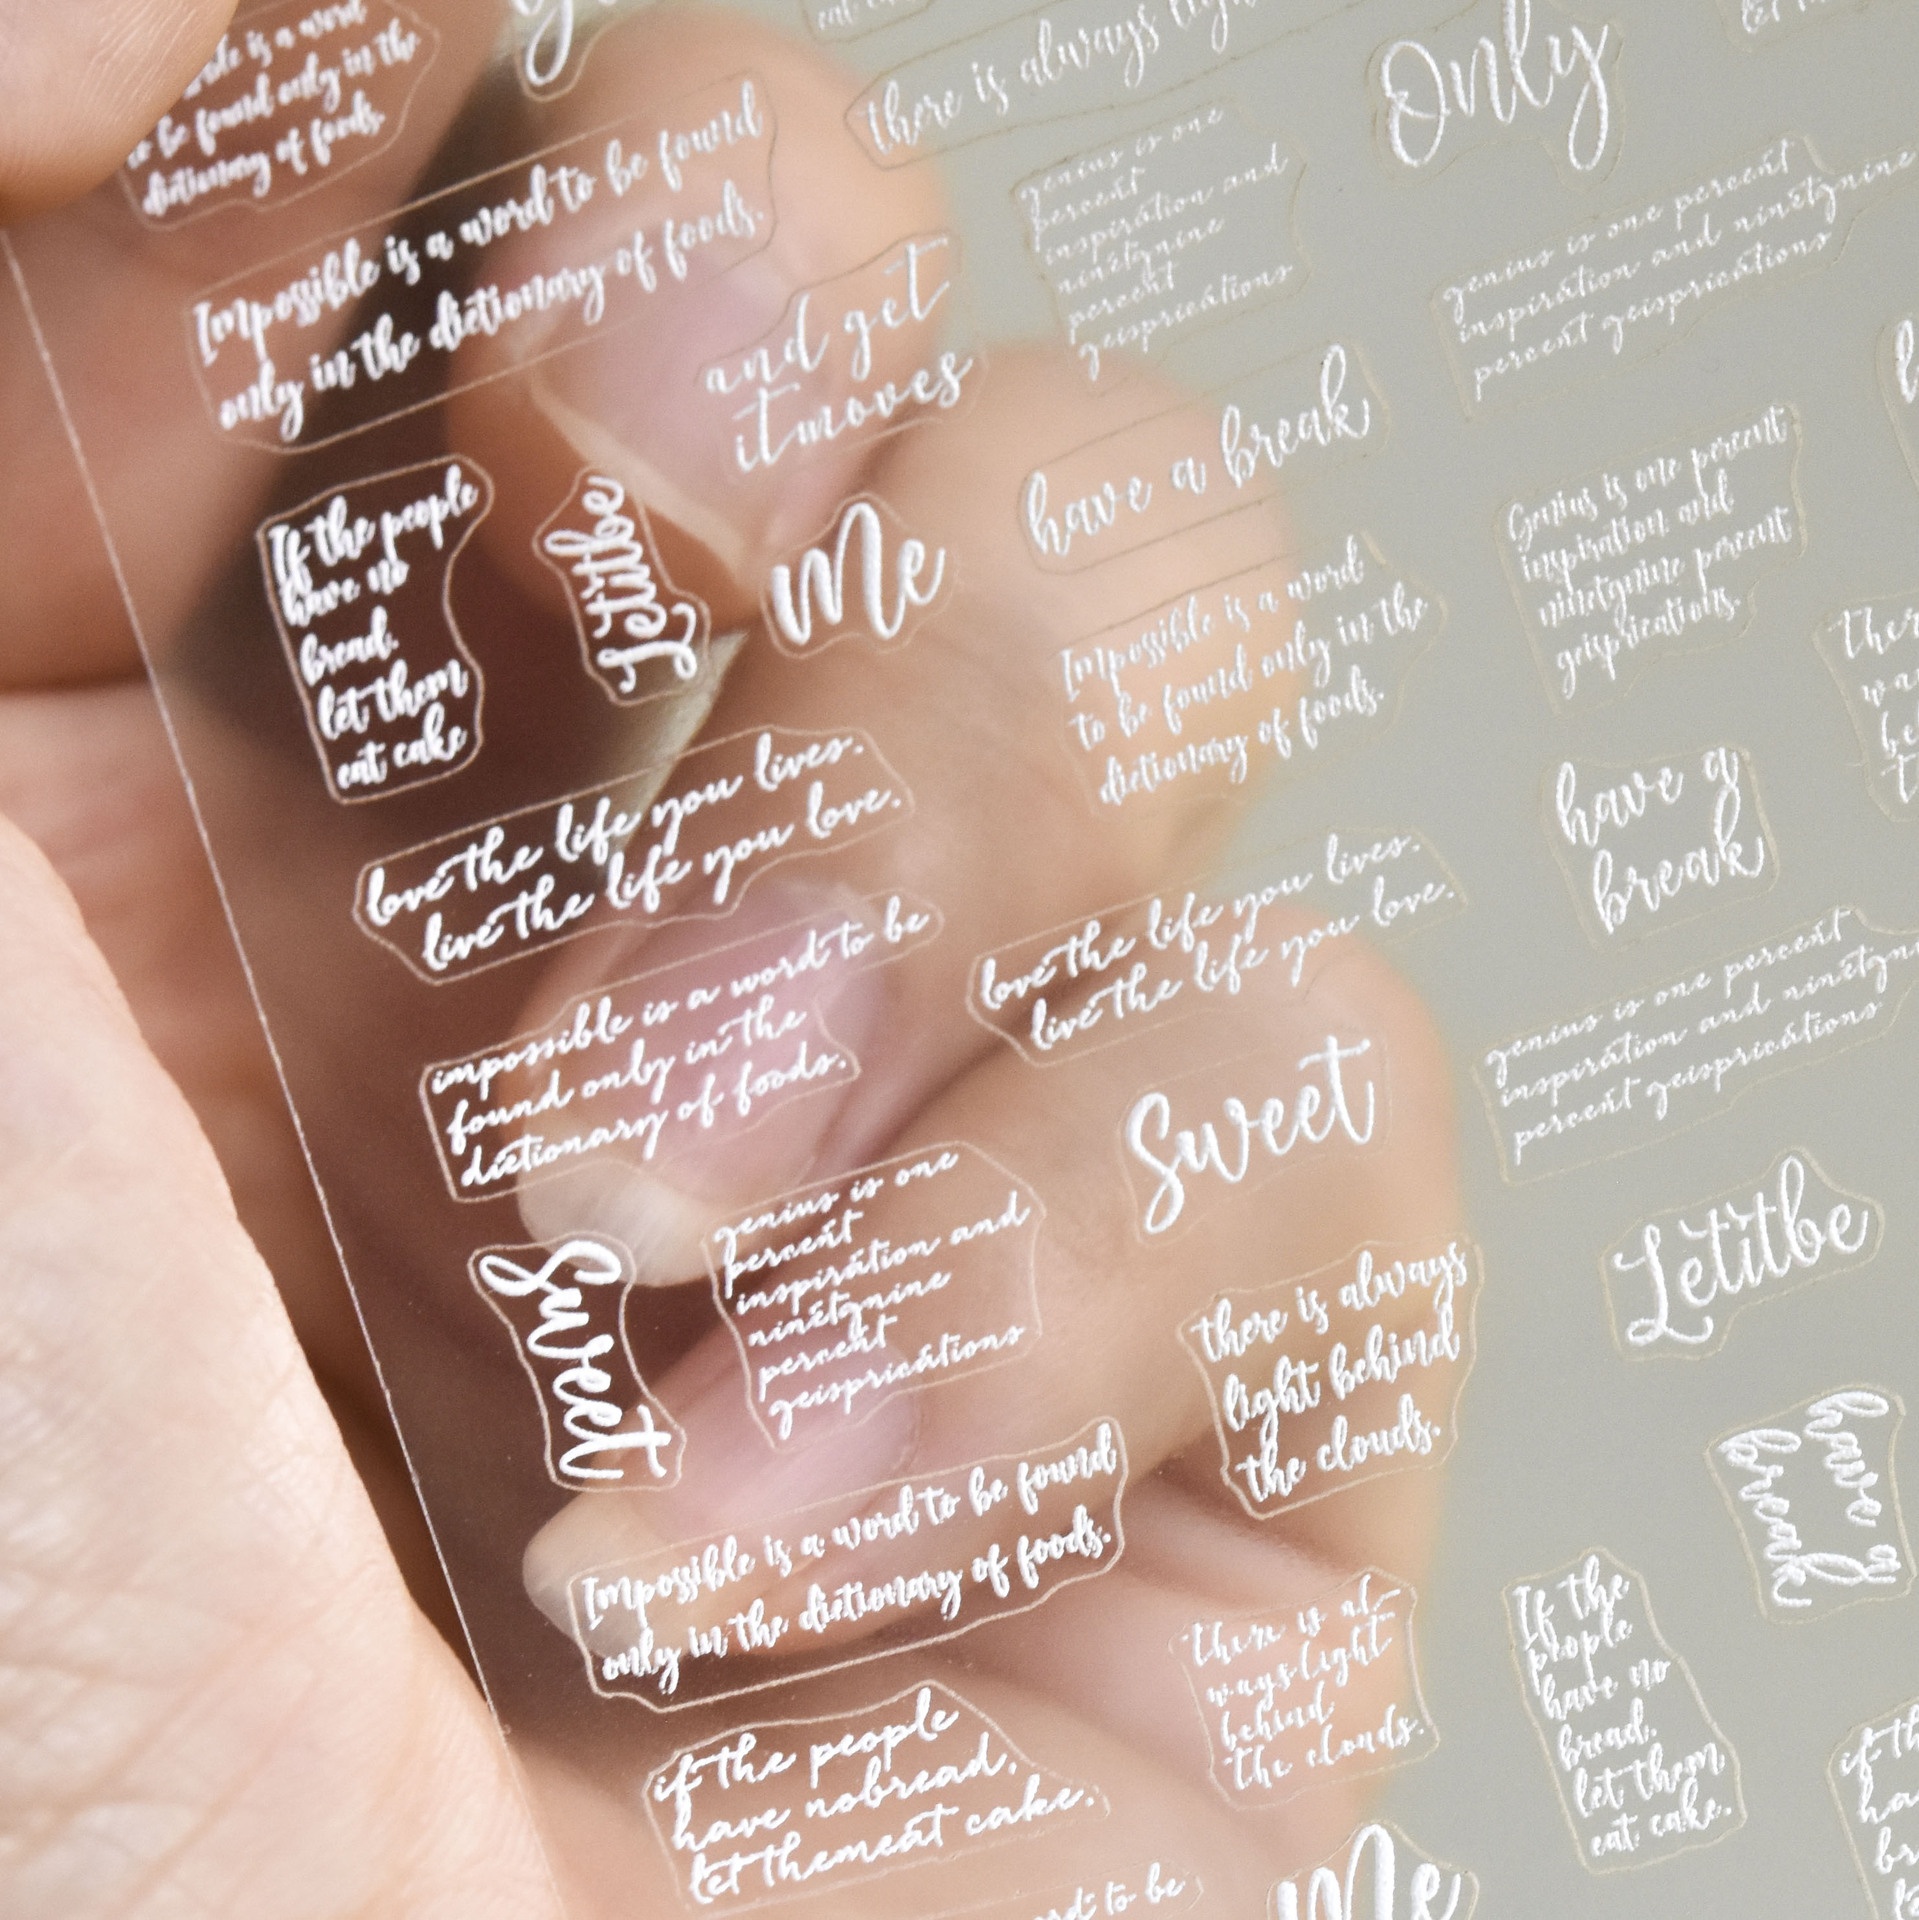 is a word
to be found only in the
dictionary of foods.
there is always
Only
Impossible is a word to be found
only in the dictionary of foods.
genius is one
percent
inspiration and
ninetynine
percent
geisprications
genius is one percent
inspiration and ninetynine
percent geisprications
and get
itmoves
have a break
If the people
have no
bread.
let them
eat cake
Letitbe
Me
Genius is one percent
inspiration and
ninetynine percent
geisprications.
Impossible is a word
to be found only in the
dictionary of foods.
love the life you lives.
live the life you love.
have a
break
love the life you lives.
live the life you love.
impossible is a word to be
found only in the
dictionary of foods.
genius is one percent
inspiration and
percent geisprications
Sweet
genius is one
percent
inspiration and
ninetynine
percent
geisprications
Sweet
Letitbe
there is always
light behind
the clouds.
have a
break
Impossible is a word to be found
only in the dictionary of foods.
there is al-
ways light
behind
the clouds.
If the
people
have no
bread.
let them
eat cake.
if the people
have nobread,
let themeat cake.
to be
Me